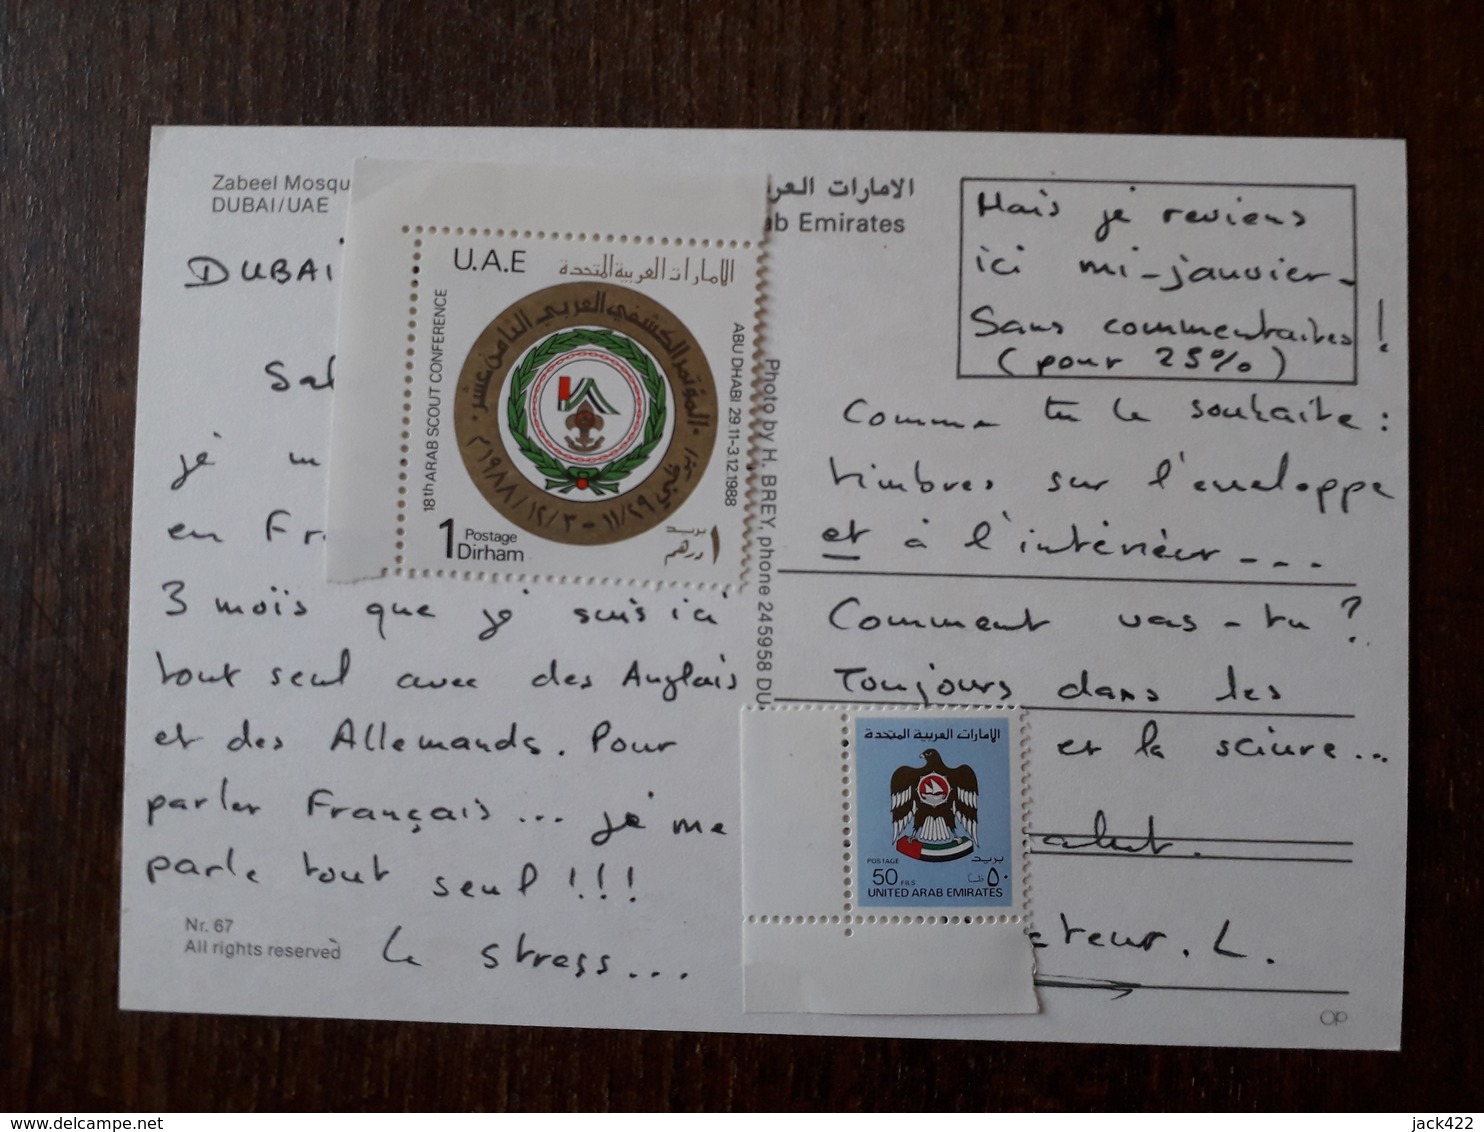 Zabeel Mosqu
DUBAI/UAE
DUBAI
Sal
je m
en Fr
3 mois que je suis ici
tout seul avec des Anglais
et des Allemands. Pour
parler Français... je me
parle tout seul !!!
Nr. 67
All rights reserved
Le stress...
U.A.E
الإمارات العربية المتحدة
18th ARAB SCOUT CONFERENCE
المؤتمر الكشفي العربي الثامن عشر
أبوظبي ٢٩/١١ - ٣/١٢/١٩٨٨م
ABU DHABI 29.11-3.12.1988
1 Postage
Dirham
بريد
١ درهم
Photo by H. BREY, phone 245958 DU
الامارات العر
ab Emirates
Mais je reviens
ici mi-janvier-
Sans commentaires !
(pour 25%)
Comme tu le souhaite :
timbres sur l'enveloppe
et à l'intérieur----
Comment vas-tu ?
Toujours dans les
et la sciure...
alut.
cteur. L.
الإمارات العربية المتحدة
POSTAGE
50 FILS
بريد
٥٠ فلسا
UNITED ARAB EMIRATES
OP
delcampe.net
jack422